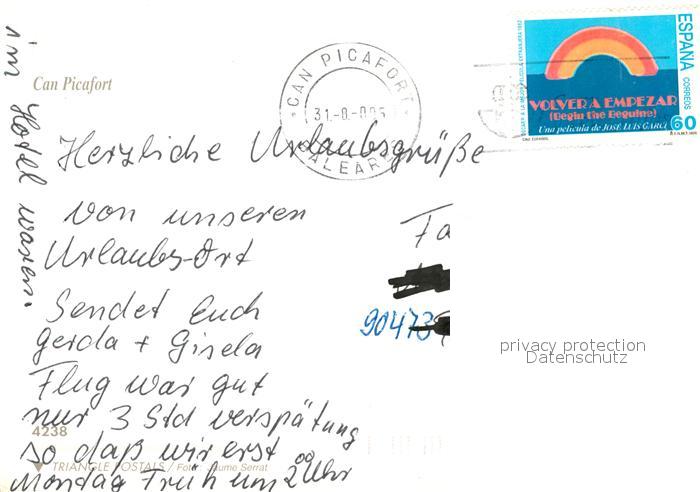 Can Picafort
CAN PICAFORT
BALEARES
ESPAÑA
CORREOS
60
VOLVER A EMPEZAR
(Begin the Beguine)
Una película de JOSÉ LUIS GARCI
Herzliche Urlaubsgrüße
von unseren
Urlaubs-Ort
Sendet Euch
Gerda + Gisela
Flug war gut
nur 3 Std verspätung
so daß wir erst
Montag Früh um 2 00 Uhr
im Hotel waren.
Fa
90473
privacy protection
Datenschutz
4238
TRIANGLE POSTALS / Foto: Jaume Serrat